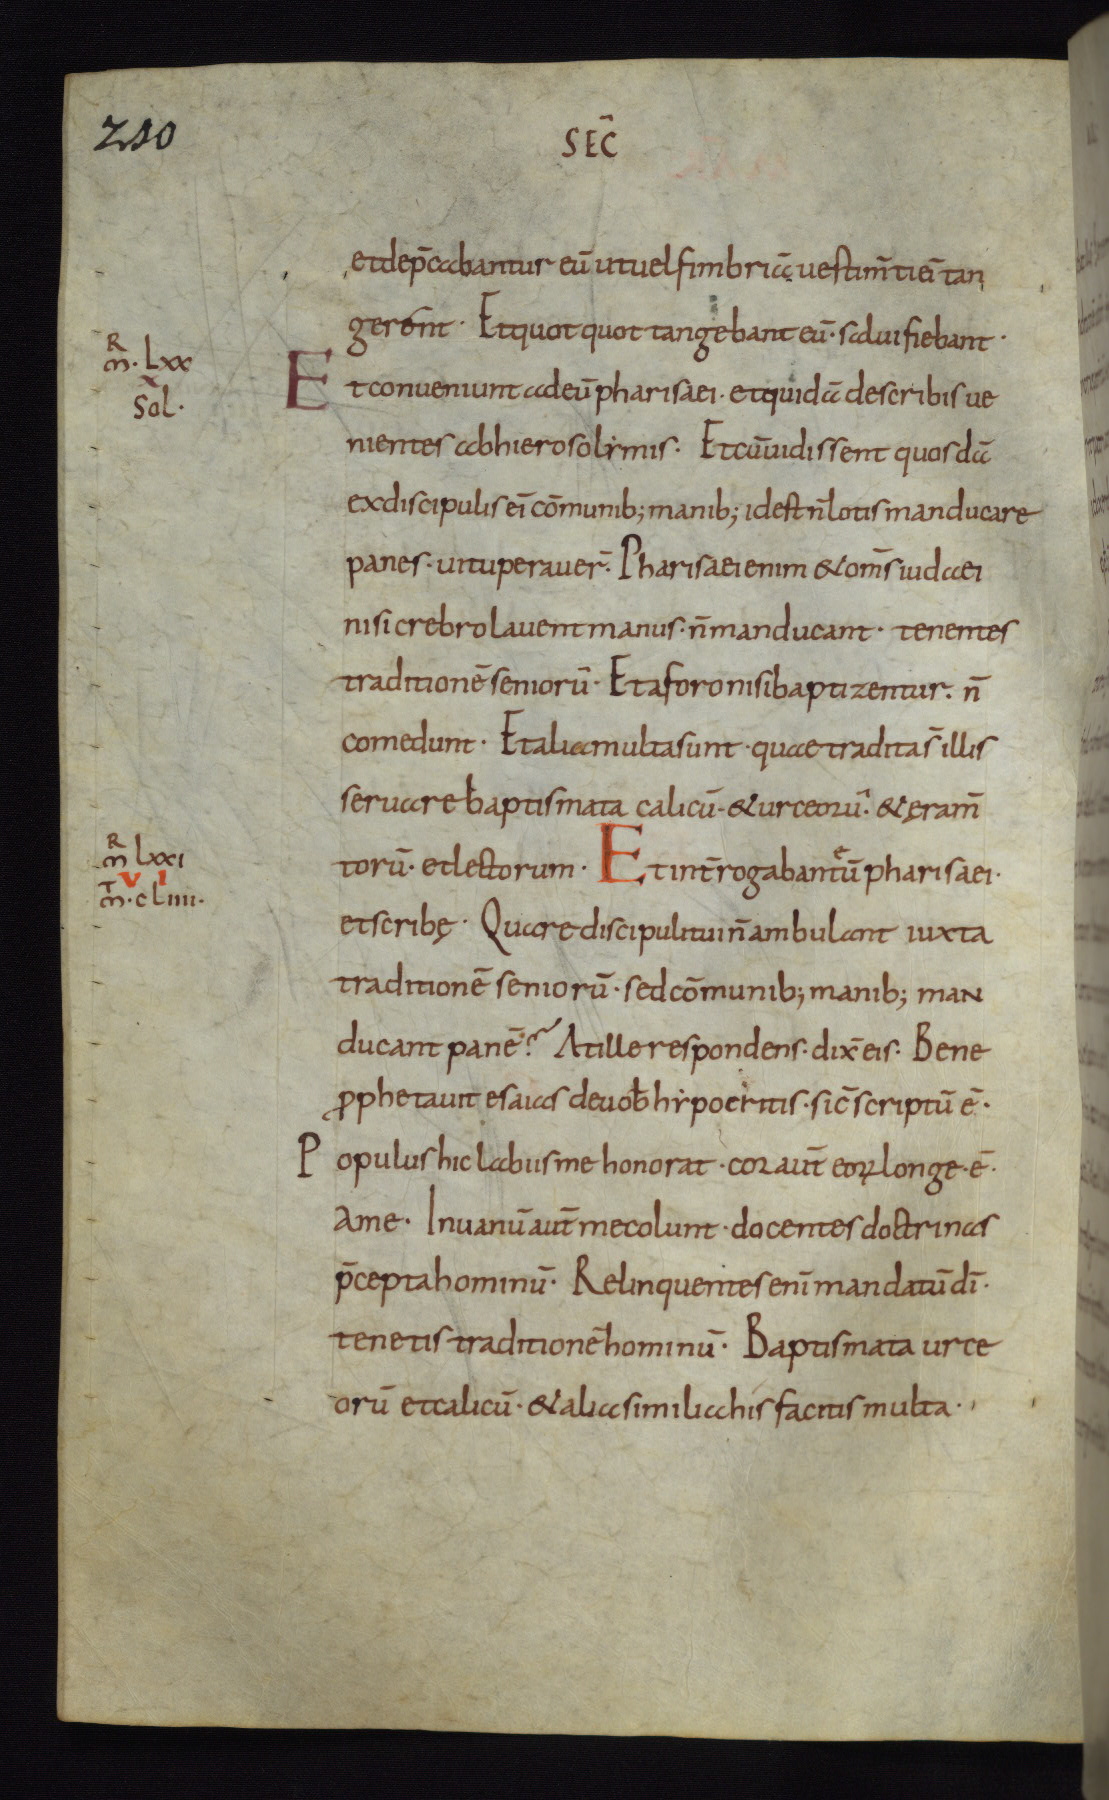 210
SEC̄
et dep̄cabantur eū ut uel fimbriā uestim̄ti ei᷒ tan
gerent. Et quotquot tangebant eū. salui fiebant.
mR̄. Lxx
x
Sol.
Et conueniunt ad eū pharisaei. et quidā de scribis ue
nientes ab hierosolymis. Et cū uidissent quosdā
ex discipulis ei᷒ cōmunib; manib; id est n̄ lotis manducare
panes. uituperauer̄. Pharisaei enim & om̄s iudaei
nisi crebro lauent manus. n̄ manducant. tenentes
traditionē seniorū. Et a foro nisi baptizentur. n̄
comedunt. Et alia multa sunt. quae tradita s̄ illis
seruare baptismata calicū. & urceorū. & ęram̄
mR̄ Lxxi
vi
m̄T. cLiiii.
torū. et lectorum. Et int̄rogabant eū pharisaei.
et scribę. Quare discipuli tui n̄ ambulant iuxta
traditionē seniorū. sed cōmunib; manib; man
ducant panē? At ille respondens. dix̄ eis. Bene
ꝓphetauit esaias de uob̄ hypocritis. sic̄ scriptū ē.
Populus hic labiis me honorat. cor aut̄ eoꝝ longe. ē.
a me. In uanū aut̄ me colunt. docentes doctrinas
p̄cepta hominū. Relinquentes enī mandatū dī.
tenetis traditionē hominū. Baptismata urce
orū et calicū. & alia similia his facitis multa.